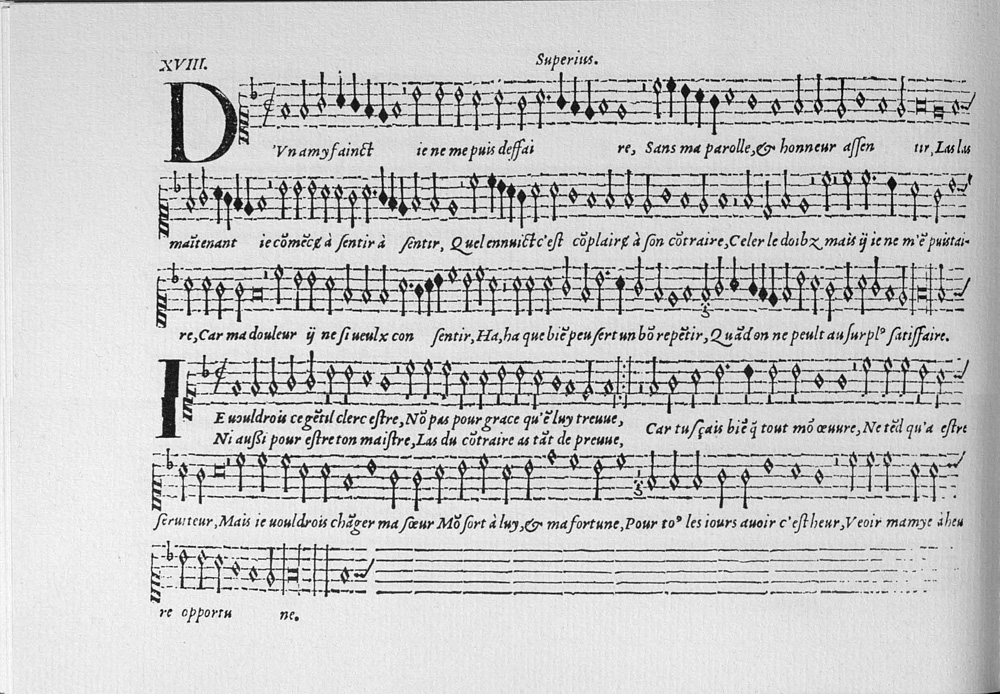 XVIII. Superius.
D'Vn amy fainct ie ne me puis deffai re, Sans ma parolle, & honneur assen tir, Las las
maītenant ie cōmēcę à sentir à sentir, Quel ennuict c'est cōplairę à son cōtraire, Celer le doibz mais q̄ ie ne m'ē puis tai-
re, Car ma douleur q̄ ne si ueulx con sentir, Ha, ha que biē peu sert un bō repētir, Quād on ne peult au surplꝰ satiffaire.
IE uouldrois ce gētil clerc estre, Nō pas pour grace qu'ē luy treuue, Car tu sçais biē q̄ tout mō œuure, Ne tēd qu'a estre
Ni aussi pour estre ton maistre, Las du cōtraire as tāt de preuue,
seruiteur, Mais ie uouldrois chāger ma sœur Mō sort à luy, & ma fortune, Pour toꝰ les iours auoir c'est heur, Veoir mamye à heu
re opportu ne.